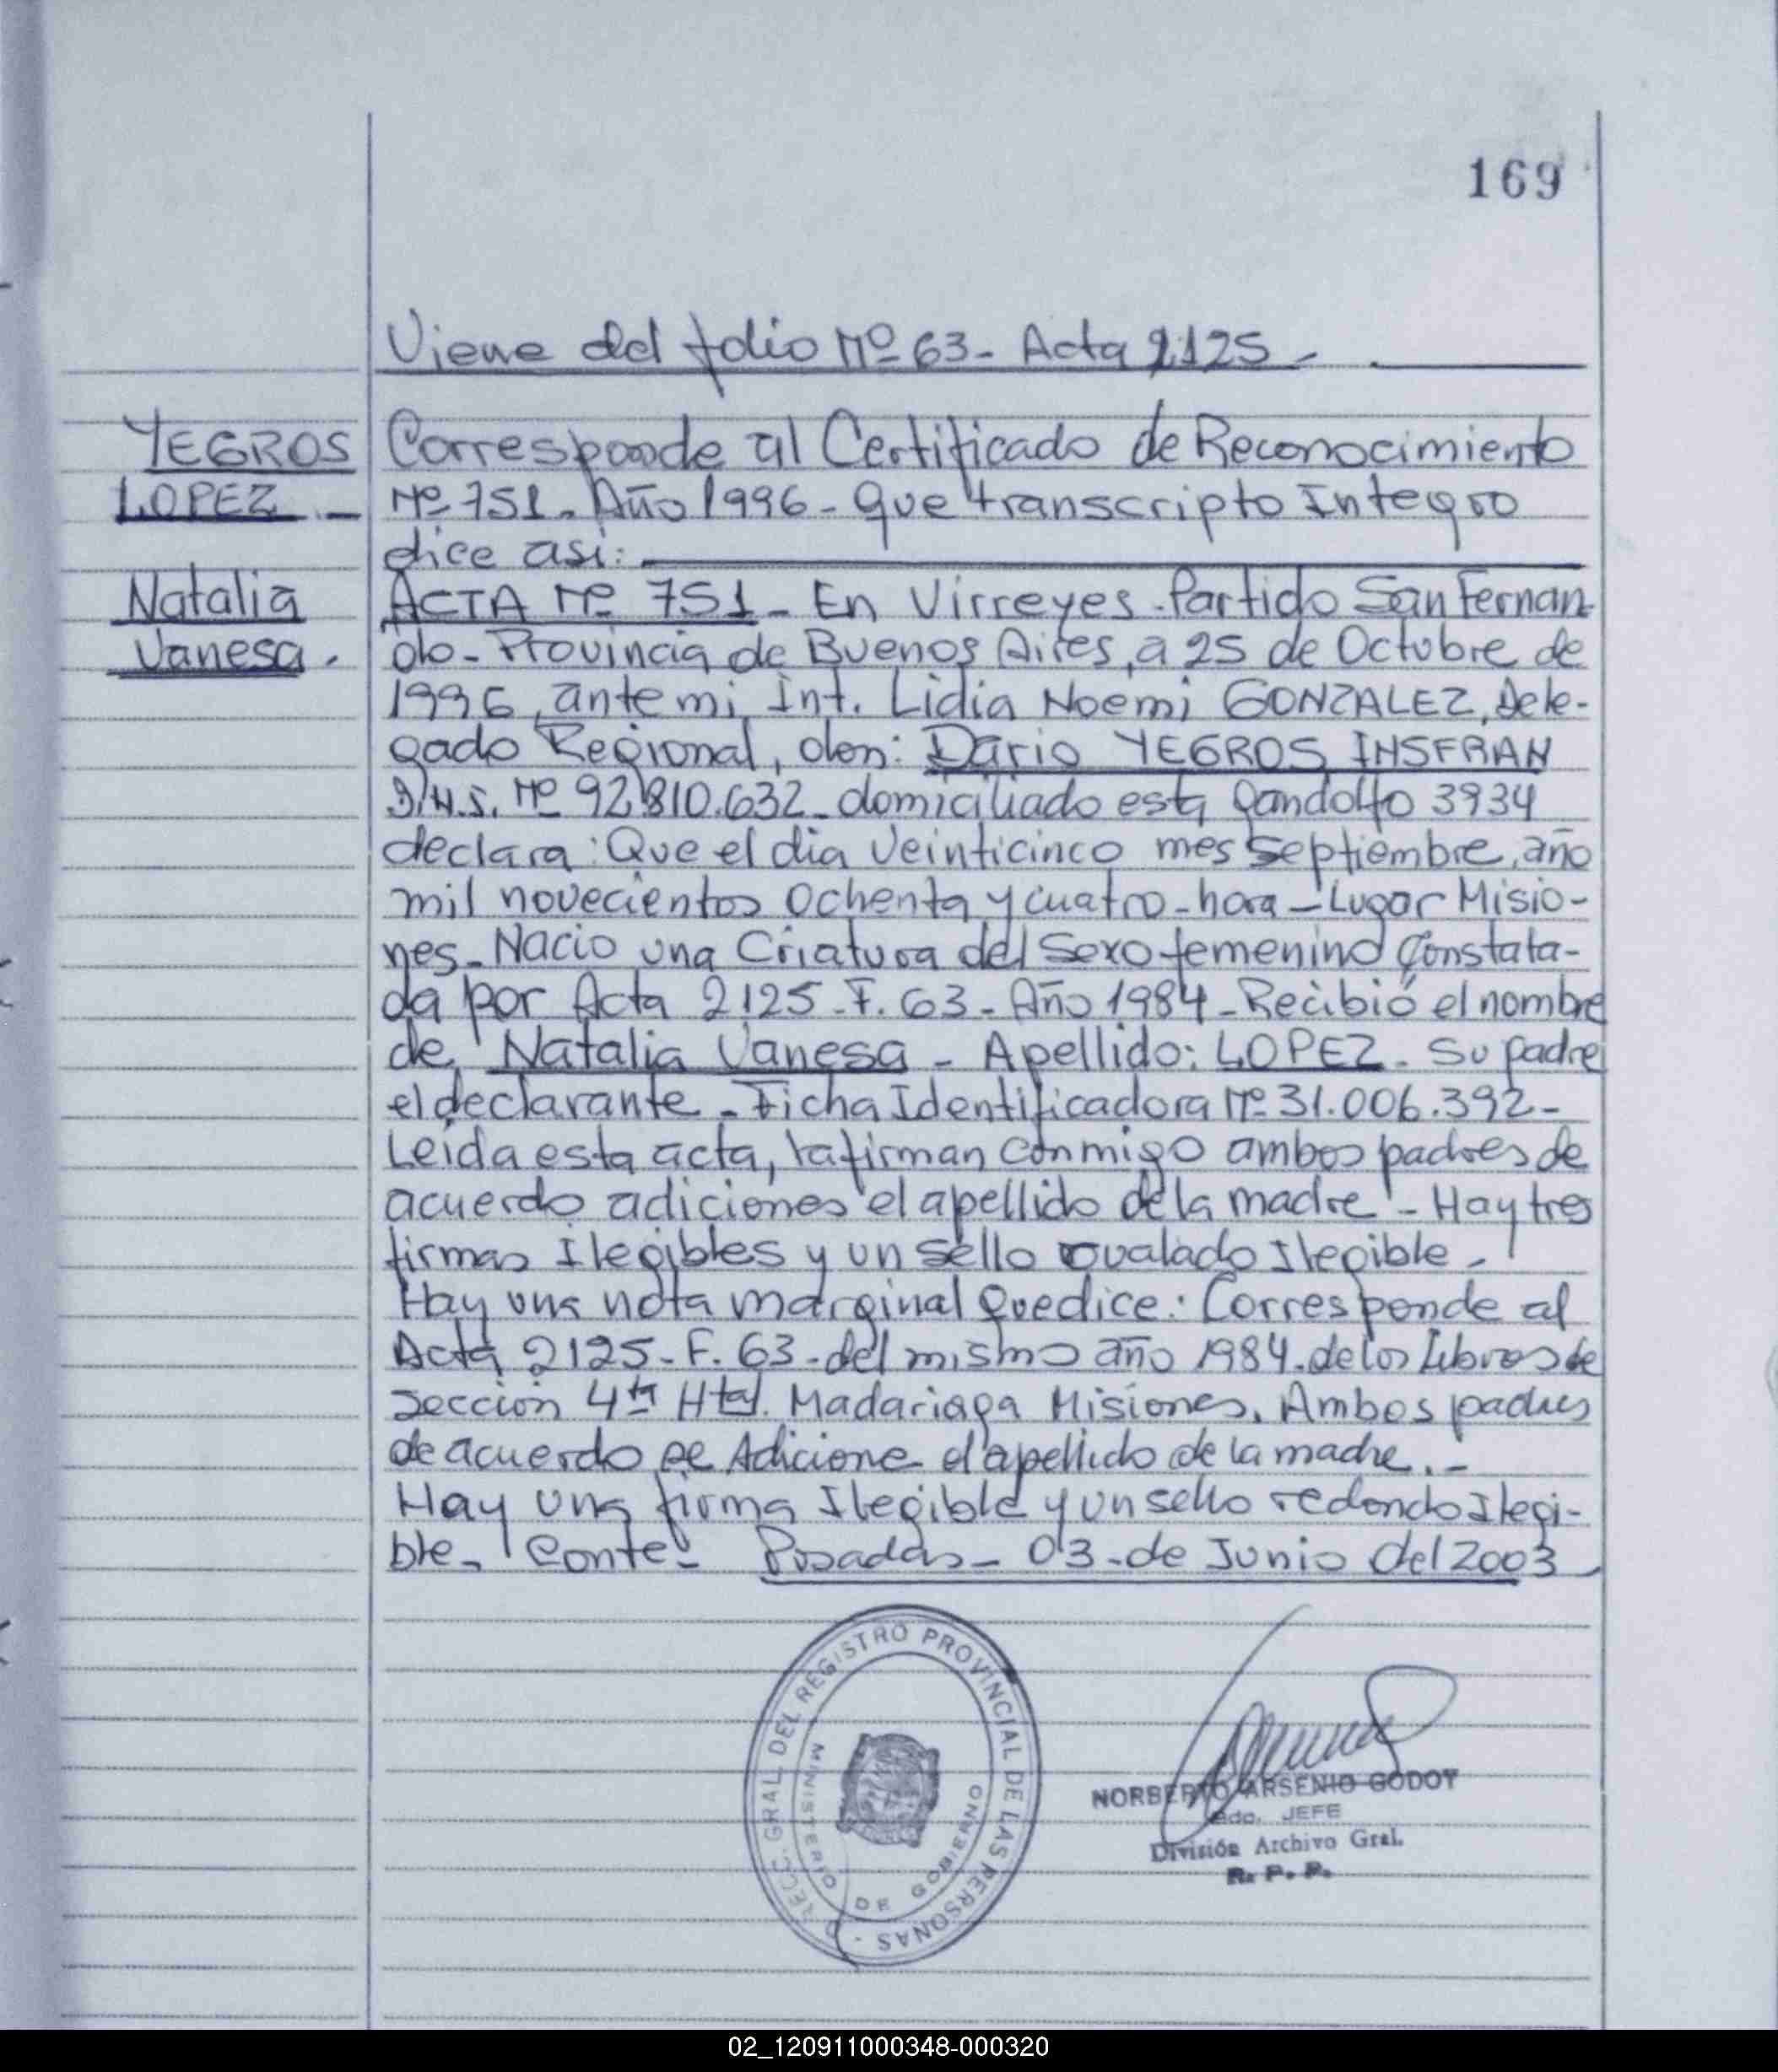 169
Viene del folio Nº 63- Acta 2125 -
YEGROS
LOPEZ -
Natalia
Vanesa.
Corresponde al Certificado de Reconocimiento
Nº 751. Año 1996- que transcripto Integro
dice asi:
ACTA Nº 751- En Virreyes-Partido San Fernan-
do-Provincia de Buenos Aires, a 25 de Octubre de
1996, ante mi, Int. Lidia Noemi GONZALEZ, Dele-
gado Regional, don: Dario YEGROS INSFRAN
D.N.I. Nº 92.810.632- domiciliado esta Gandolfo 3934
declara: Que el dia veinticinco mes Septiembre, año
mil novecientos ochenta y cuatro-hora-Lugar Misio-
nes- Nacio una Criatura del Sexo femenino Constata-
da por Acta 2125-F. 63- Año 1984-Recibió el nombre
de, Natalia Vanesa - Apellido: LOPEZ- Su padre
el declarante- Ficha Identificadora Nº 31.006.392-
Leida esta acta, la firman conmigo ambos padres de
acuerdo adiciones el apellido de la madre - Hay tres
firmas Ilegibles y un sello ovalado Ilegible-
Hay una nota marginal que dice: Corresponde al
Acta 2125- F. 63-del mismo año 1984. de los Libros de
Sección 4ta Htal. Madariaga Misiones. Ambos padres
de acuerdo se Adicione el apellido de la madre.-
Hay una firma Ilegible y un sello redondo Ilegi-
ble- Conte- Posadas- 03-de Junio del 2003
DIRECC. GRAL. DEL REGISTRO PROVINCIAL DE LAS PERSONAS -
MINISTERIO DE GOBIERNO
NORBERTO ARSENIO GODOY
JEFE
División Archivo Gral.
R. P. P.
02_120911000348-000320